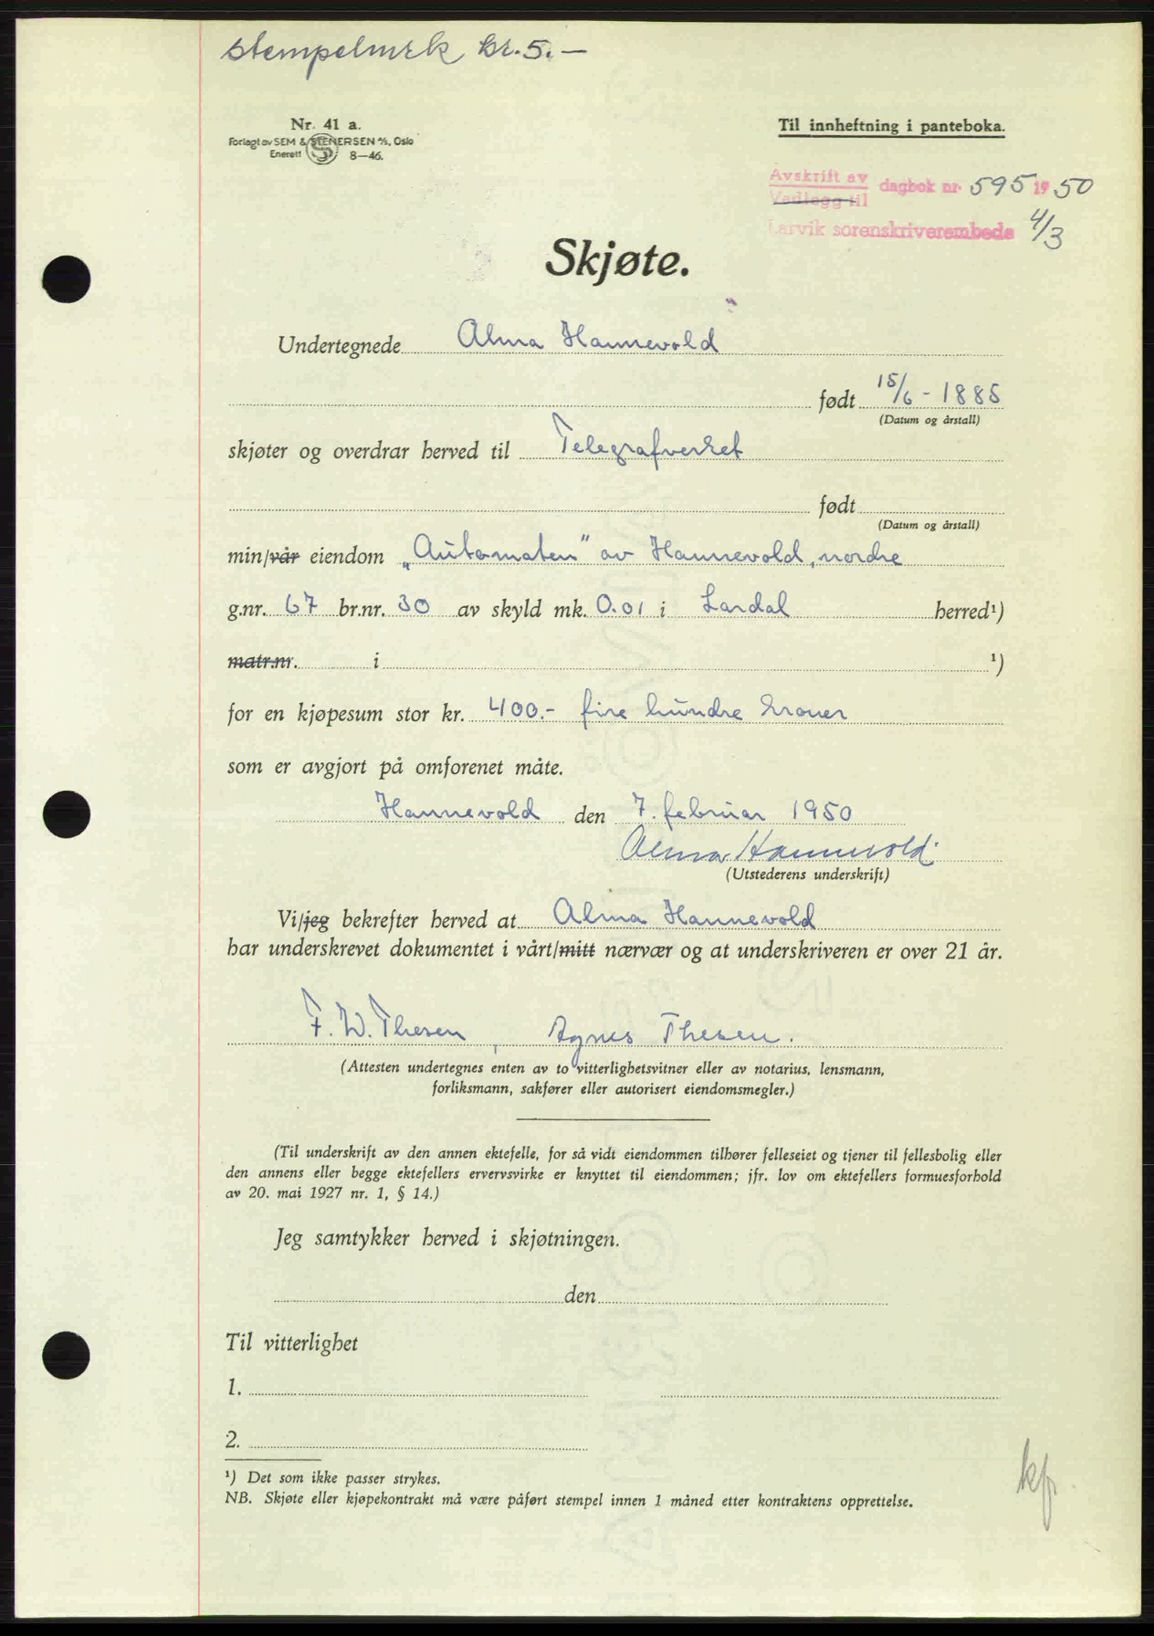 stempelmrk kr. 5.—
Nr. 41 a.
Forlagt av SEM & STENERSEN A/S, Oslo
Enerett 8—46.
Til innheftning i panteboka.
Avskrift av
Vedlegg til
dagbok nr. 595 1950
Larvik sorenskriverembede 4/3
Skjøte.
Undertegnede Alma Hannevold
født 15/6 - 1885
(Datum og årstall)
skjøter og overdrar herved til Telegrafverket
født
(Datum og årstall)
min/vår eiendom „Automaten" av Hannevold, nordre
g.nr. 67 br.nr. 30 av skyld mk. 0.01 i Lardal herred¹)
matr.nr. i ¹)
for en kjøpesum stor kr. 400.- fire hundre kroner
som er avgjort på omforenet måte.
Hannevold den 7. februar 1950
Alma Hannevold
(Utstederens underskrift)
Vi/jeg bekrefter herved at Alma Hannevold
har underskrevet dokumentet i vårt/mitt nærvær og at underskriveren er over 21 år.
F. W. Thesen, Agnes Thesen.
(Attesten undertegnes enten av to vitterlighetsvitner eller av notarius, lensmann,
forliksmann, sakfører eller autorisert eiendomsmegler.)
(Til underskrift av den annen ektefelle, for så vidt eiendommen tilhører felleseiet og tjener til fellesbolig eller
den annens eller begge ektefellers ervervsvirke er knyttet til eiendommen; jfr. lov om ektefellers formuesforhold
av 20. mai 1927 nr. 1, § 14.)
Jeg samtykker herved i skjøtningen.
den
Til vitterlighet
1.
2.
¹) Det som ikke passer strykes.
NB. Skjøte eller kjøpekontrakt må være påført stempel innen 1 måned etter kontraktens opprettelse.